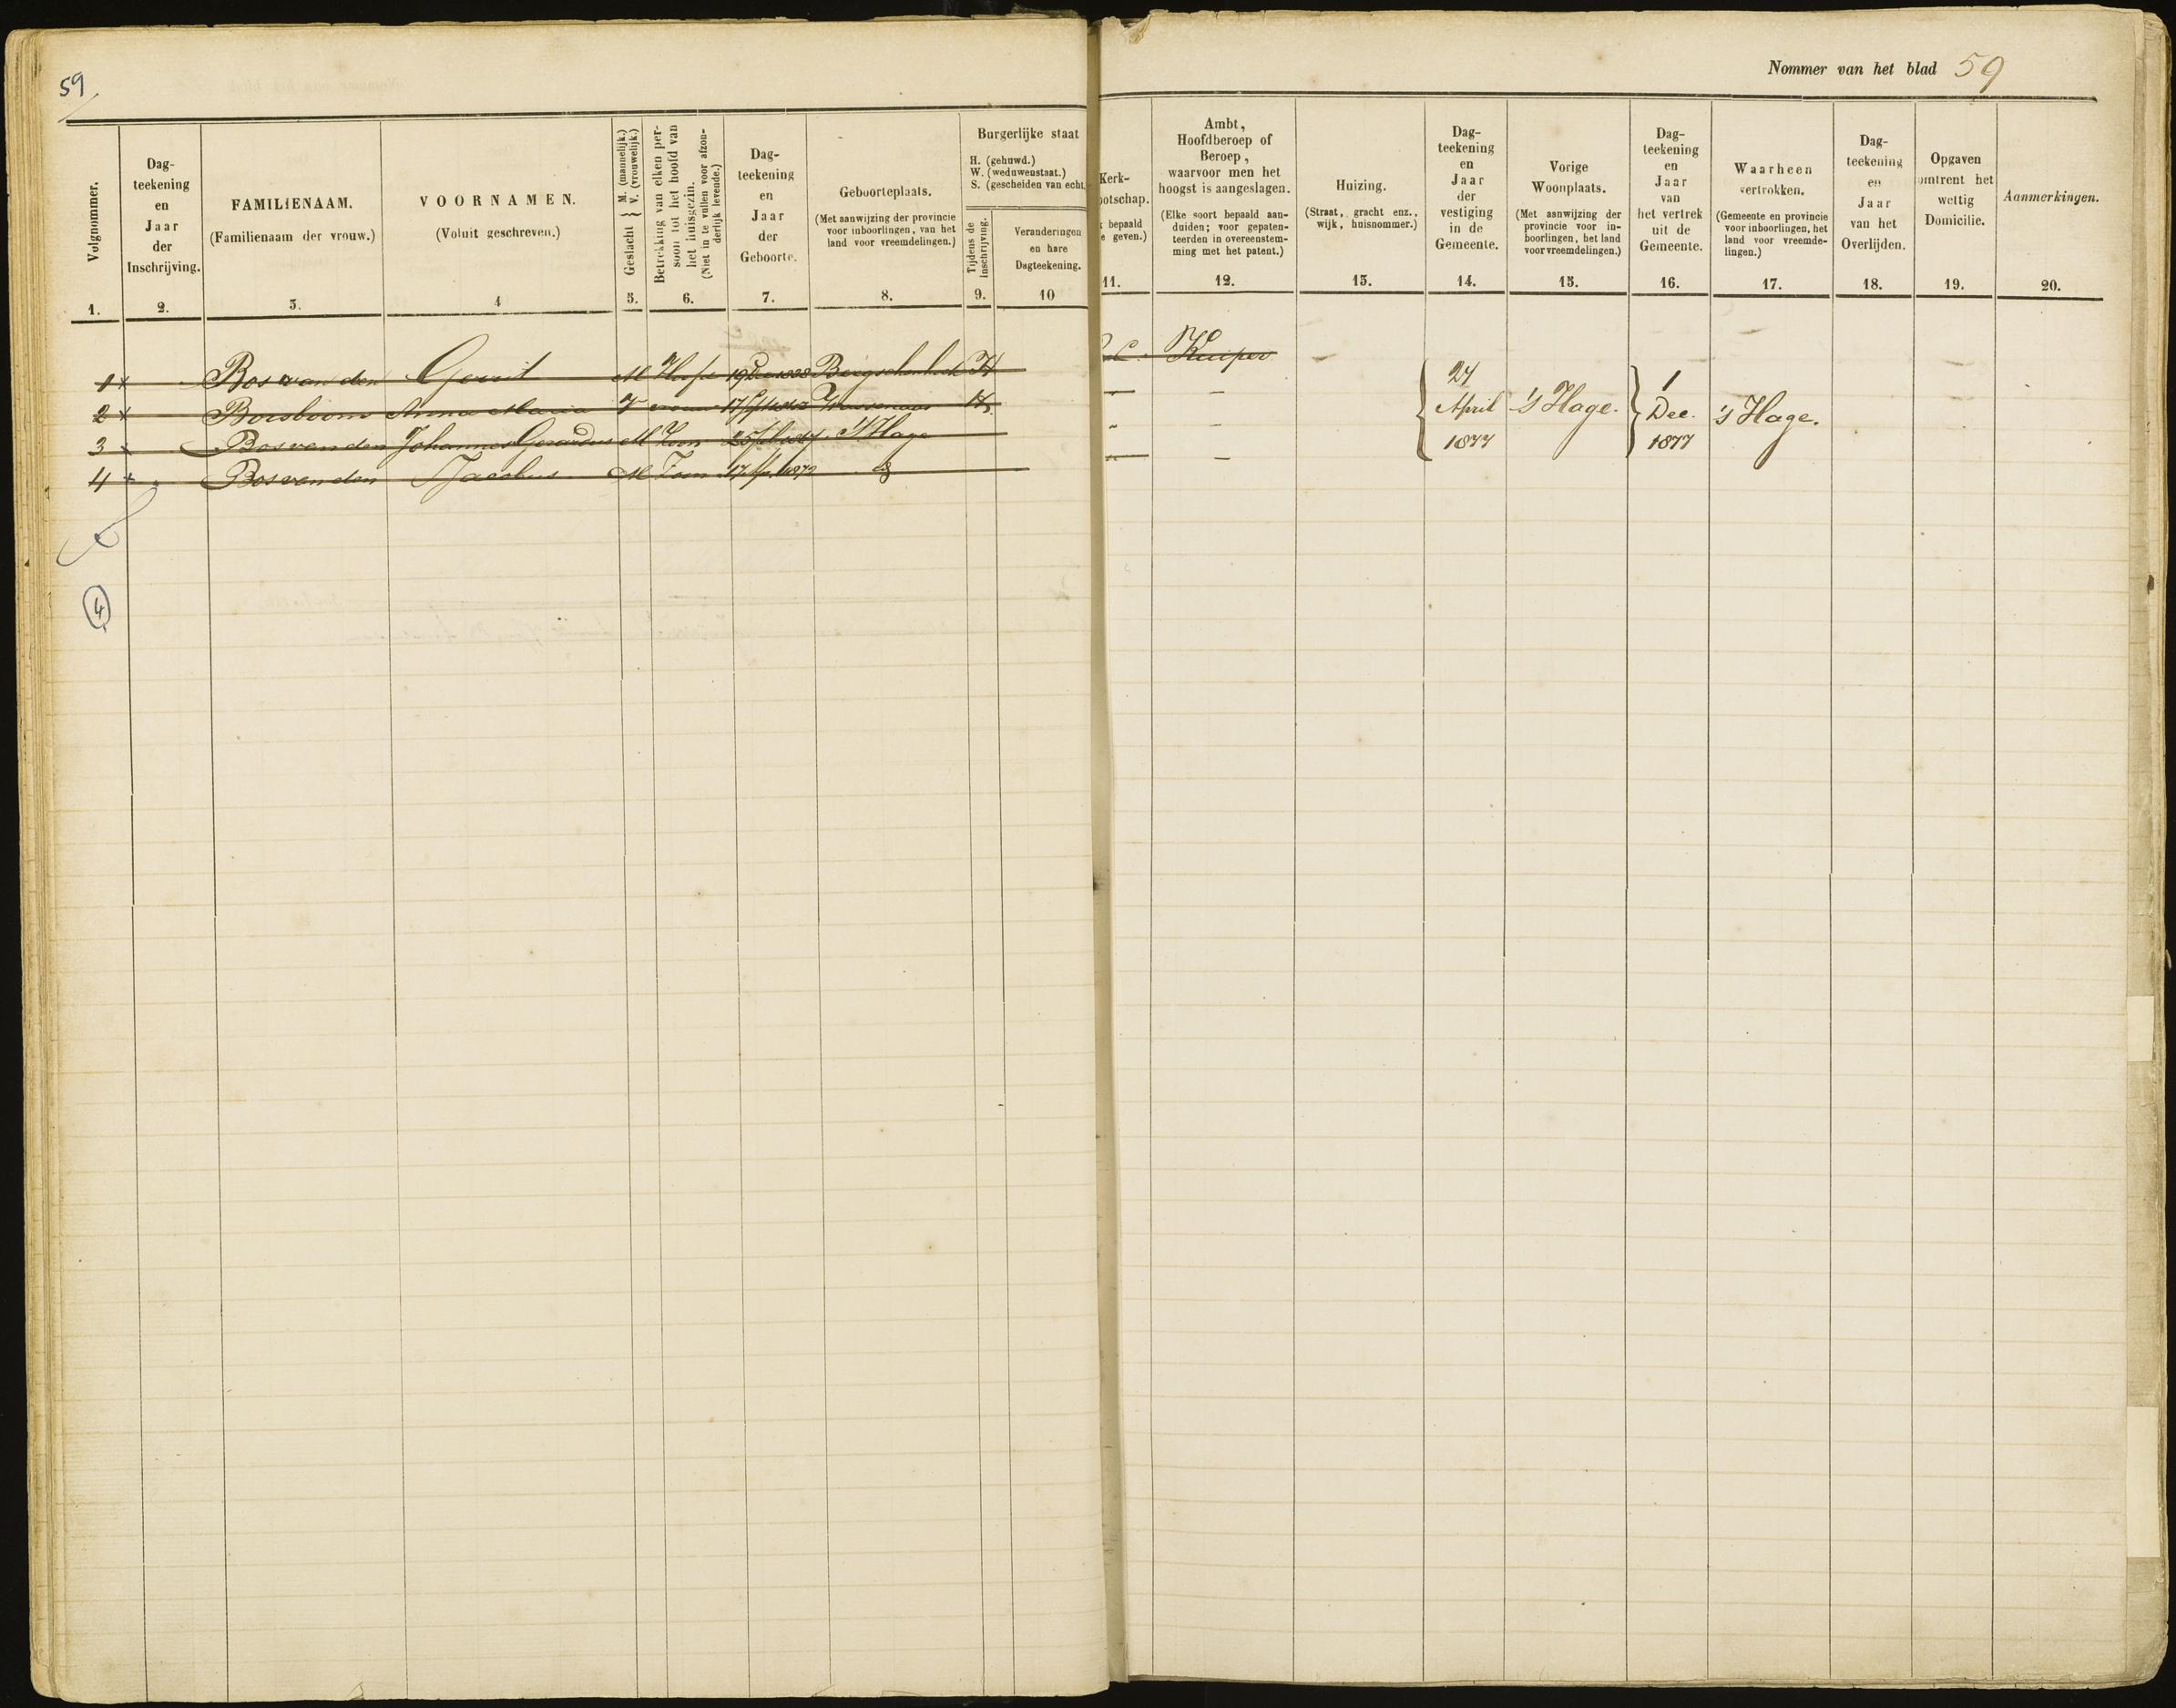 59
Nommer van het blad 59
Volgnommer.
1.
Dag-
teekening
en
Jaar
der
Inschrijving.
2.
FAMILIENAAM.
(Familienaam der vrouw.)
3.
VOORNAMEN.
(Voluit geschreven.)
4
Geslacht } M. (mannelijk.)
V. (vrouwelijk.)
5.
Betrekking van elken per-
soon tot het hoofd van
het huisgezin.
(Niet in te vullen voor afzon-
derlijk levende.)
6.
Dag-
teekening
en
Jaar
der
Geboorte.
7.
Geboorteplaats.
(Met aanwijzing der provincie
voor inboorlingen, van het
land voor vreemdelingen.)
8.
Burgerlijke staat
H. (gehuwd.)
W. (weduwenstaat.)
S. (gescheiden van echt.
Tijdens de
inschrijving.
9.
Veranderingen
en hare
Dagteekening.
10
Kerk-
ootschap.
bepaald
e geven.)
11.
Ambt,
Hoofdberoep of
Beroep,
waarvoor men het
hoogst is aangeslagen.
(Elke soort bepaald aan-
duiden; voor gepaten-
teerden in overeenstem-
ming met het patent.)
12.
Huizing.
(Straat, gracht enz.,
wijk, huisnommer.)
13.
Dag-
teekening
en
Jaar
der
vestiging
in de
Gemeente.
14.
Vorige
Woonplaats.
(Met aanwijzing der
provincie voor in-
boorlingen, het land
voor vreemdelingen.)
15.
Dag-
teekening
en
Jaar
van
het vertrek
uit de
Gemeente.
16.
Waarheen
vertrokken.
(Gemeente en provincie
voor inboorlingen, het
land voor vreemde-
lingen.)
17.
Dag-
teekening
en
Jaar
van het
Overlijden.
18.
Opgaven
omtrent het
wettig
Domicilie.
19.
Aanmerkingen.
20.
1 x Bos van den Gerrit M Hoofd 19 Dec 1828 Bergschenhoek H C. Kuiper
2 x Borsboom Anna Maria V vrouw Wassenaar H
3 x Bos van den Johannes Gerardus M Zoon 's Hage
4 x Bos van den Jacobus M Zoon
{ 24
April
1877
's Hage.
} 1
Dec.
1877
's Hage.
4